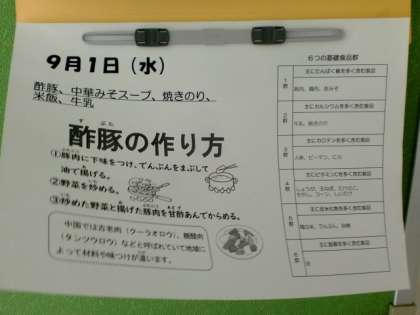 9月1日（水）
酢豚、中華みそスープ、焼きのり、
米飯、牛乳
酢豚の作り方
すぶた
①豚肉に下味をつけ、でんぷんをまぶして
油で揚げる。
②野菜を炒める。
③炒めた野菜と揚げた豚肉を甘酢あんでからめる。
中国では古老肉（クーラオロウ）、糖醋肉
（タンツウロウ）などと呼ばれていて地域に
よって材料や味つけが違います。
6つの基礎食品群
1群
主にたんぱく質を多く含む食品
2群
主にカルシウムを多く含む食品
牛乳、焼きのり
3群
主にカロテンを多く含む食品
人参、ピーマン、にら
4群
主にビタミンCを多く含む食品
5群
主に炭水化物を多く含む食品
6群
主に脂質を多く含む食品
油